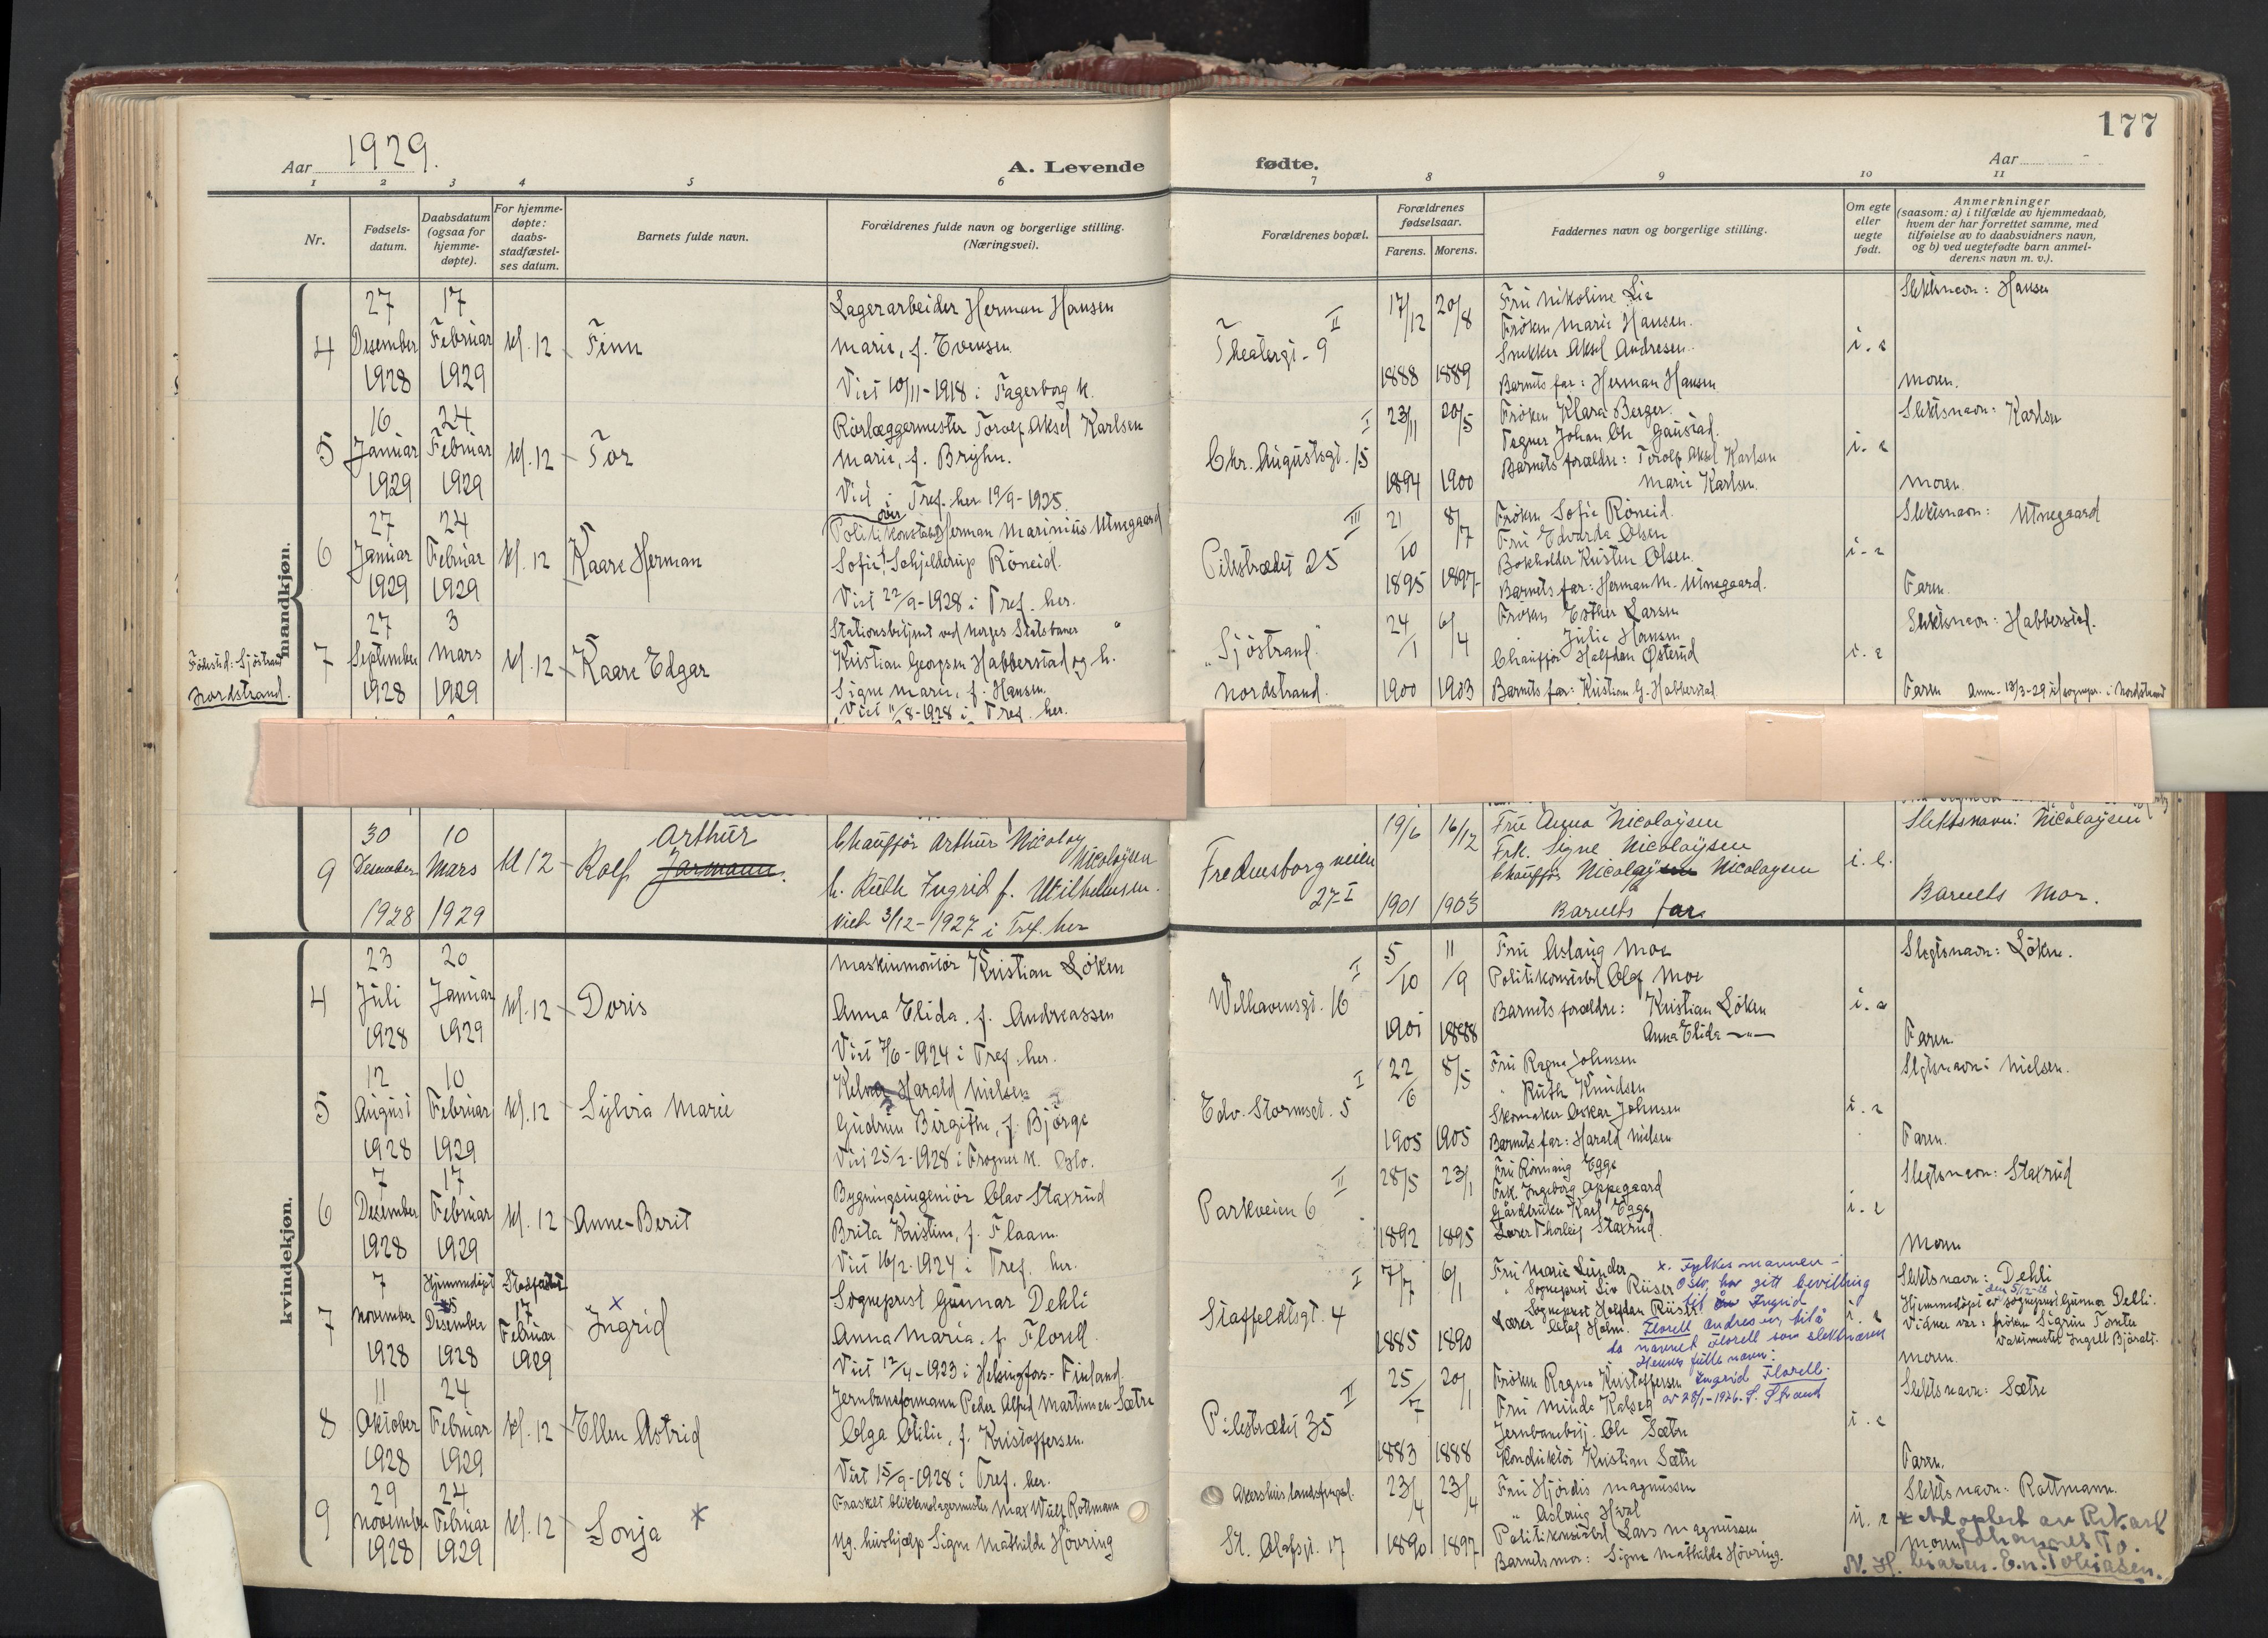 177
Aar 1929.
A. Levende
fødte.
Aar
1 2 3 4 5 6 7 8 9 10 11
Nr.
Fødsels-
datum.
Daabsdatum
(ogsaa for
hjemme-
døpte).
For hjemme-
døpte:
daabs-
stadfæstel-
ses datum.
Barnets fulde navn.
Forældrenes fulde navn og borgerlige stilling.
(Næringsvei).
Forældrenes bopæl.
Forældrenes
fødselsaar.
Farens. Morens.
Faddernes navn og borgerlige stilling.
Om egte
eller
uegte
født.
Anmerkninger
(saasom: a) i tilfælde av hjemmedaab,
hvem der har forrettet samme, med
tilføielse av to daabsvidners navn,
og b) ved uegtefødte barn anmel-
derens navn m. v.).
mandkjøn.
4
27
Desember
1928
17
Februar
1929
kl. 12
Finn
Lagerarbeider Herman Hansen
Marie, f. Evensen
Viet 10/11-1918 i Fagerborg k.
Theatergt. 9 II
17/12 1888
20/8 1889
Fru Nikoline Lie
Frøken Marie Hansen.
Snekker Aksel Andresen.
Barnets far: Herman Hansen
i. e
Slektsnavn: Hansen
Moren.
5
16
Januar
1929
24
Februar
1929
kl. 12
Tor
Rørlæggermester Torolf Aksel Karlsen
Marie, f. Bryhn.
Viet i Tref. her 19/9-1925.
Chr. Augustsgt. 15 I
23/11 1894
20/5 1900
Frøken Klara Berger.
Tegner Johan Chr Gaustad.
Barnets forældre: Torolf Aksel Karlsen
Marie Karlsen.
i. e
Slektsnavn: Karlsen
Moren.
6
27
Januar
1929
24
Februar
1929
kl. 12
Kaare Herman
over
Politikonstabel Herman Marinius Utnegaard
Sofie Schjelderup Røneid.
Viet 22/9-1928 i Tref. her.
Pilestrædet 25 III
21/10 1895
8/7 1897
Frøken Sofie Røneid.
Fru Edvarda Olsen
Bokholder Kristen Olsen.
Barnets far: Herman M. Utnegaard.
i. e
Slektsnavn: Utnegaard
Faren.
Fødested: Sjøstrand
Nordstrand.
7
27
September
1928
3
Mars
1929
kl. 12
Kaare Edgar
Stationsbetjent ved Norges Statsbaner
Kristian Georgsen Habberstad og h.
Signe Marie, f. Hansen.
Viet 11/8-1928 i Tref. her.
"Sjøstrand"
Nordstrand.
24/1 1900
6/4 1903
Frøken Esther Larsen
" Julie Hansen
Chauffør Halfdan Østerud
Barnets far: Kristian G. Habberstad.
i. e
Slektsnavn: Habberstad.
Faren Anm. 13/3-29 til sognepr. i Nordstrand
9
30
Desember
1928
10
Mars
1929
kl 12
Arthur
Rolf Jarmann.
Chauffør Arthur Nicolay
Nicolaysen
h. Ruth Ingrid f. Wilhelmsen.
viet 3/12-1927 i Tref. her
Fredensborgveien
27-I
19/6 1901
16/12 1903
Fru Anna Nicolaysen
Frk. Signe Nicolaysen
Chauffør Nicolaysen Nicolaysen
Barnets far
i. e.
Slektsnavn: Nicolaysen
Barnets Mor.
kvindekjøn.
4
23
Juli
1928
20
Januar
1929
kl. 12
Doris
Maskinmontør Kristian Løken
Anna Elida. f. Andreassen
Viet 7/6-1924 i Tref. her.
Welhavensgt. 16 I
5/10 1901
11/9 1888
Fru Aslaug Moe
Politikonstabel Olaf Moe
Barnets forældre: Kristian Løken
Anna Elida -"-
i. e
Slegtsnavn: Løken.
Faren.
5
12
August
1928
10
Februar
1929
kl. 12
Sylvia Marie
Kelner Harald Nielsen
Gudrun Birgitte, f. Bjørge
Viet 25/2-1928 i Frogner k. Oslo.
Edv. Stormsgt. 5 I
22/6 1905
8/5 1905
Fru Ragna Johnsen
" Ruth Knudsen
Skomaker Oskar Johnsen
Barnets far: Harald Nielsen
i. e
Slegtsnavn: Nielsen.
Faren.
6
7
Desember
1928
17
Februar
1929
kl. 12
Anne-Berit
Bygningsingeniør Olav Staxrud
Brita Kristine, f. Flaam.
Viet 16/2-1924 i Tref. her.
Parkveien 6 II
28/5 1892
23/1 1895
Fru Rønnaug Egge
Frk. Ingeborg Oppegaard
Gårdbruker Karl Egge
Lærer Thorleif Staxrud.
i. e
Slegtsnavn: Staxrud
Moren
7
7
November
1928
Hjemmedøpt
Desember
1928
Stadfæstet
17
Februar
1929
Ingrid x
Sogneprest Gunnar Dehli
Anna Maria. f. Florell.
Viet 12/4-1923 i Helsingfors - Finland.
Staffeldtsgt. 4 I
7/7 1885
6/1 1890
Fru Marie Lunder
" Sogneprest Siv Riiser
Sogneprest Halfdan Riiser.
Lærer Olaf Holm.
x. Fylkesmannen i
Oslo har gitt bevilling
til at Ingrid
Florell endres til
ta navnet Florell som slektsnavn
Hennes fulle navn:
Ingrid Florell.
i. e
Slektsnavn: Dehli
den 5/12-28
Hjemmedøpt av sogneprest Gunnar Dehli.
Vidner var: frøken Sigrun Tomter
vaktmester Ingolf Bjørset.
Moren.
8
11
Oktober
1928
24
Februar
1929
kl. 12
Ellen Astrid
Jernbaneformann Peder Alfred Martinsen Sætre
Olga Otilie, f. Kristoffersen.
Viet 15/9-1928 i Tref. her.
Pilestrædet 35 II
25/7 1883
20/1 1888
Frøken Ragna Kristoffersen
Fru Minda Kalseg
Jernbanebetj. Chr Sætre
Konduktør Kristian Sætre
i. e
Slektsnavn: Sætre
Faren.
9
29
November
1928
24
Februar
1929
kl. 12
Sonja *
Fraskilt blikkenslagermester Max Wulf Rottmann
Ug. hushjælp Signe Mathilde Høvring
Akershus landsfængsel.
St. Olafsgt. 17
23/4 1890
23/4 1897
Fru Hjørdis Magnussen
" Aslaug Hval
Politikonstabel Lars Magnussen
Barnets mor: Signe Mathilde Høvring.
u. e
Slektsnavn: Rottmann.
Moren
* Adoptert av
Johannes